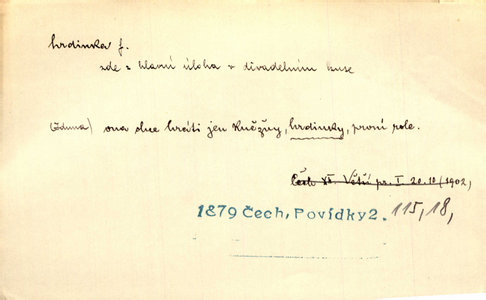 hrdinka f.
zde = hlavní úloha v divadelním kuse
ona chce hráti jen kněžny, hrdinky, první role.
Čech XI. Větší pr. I. 20.10 (1902,
1879 Čech, Povídky 2. 115, 18,